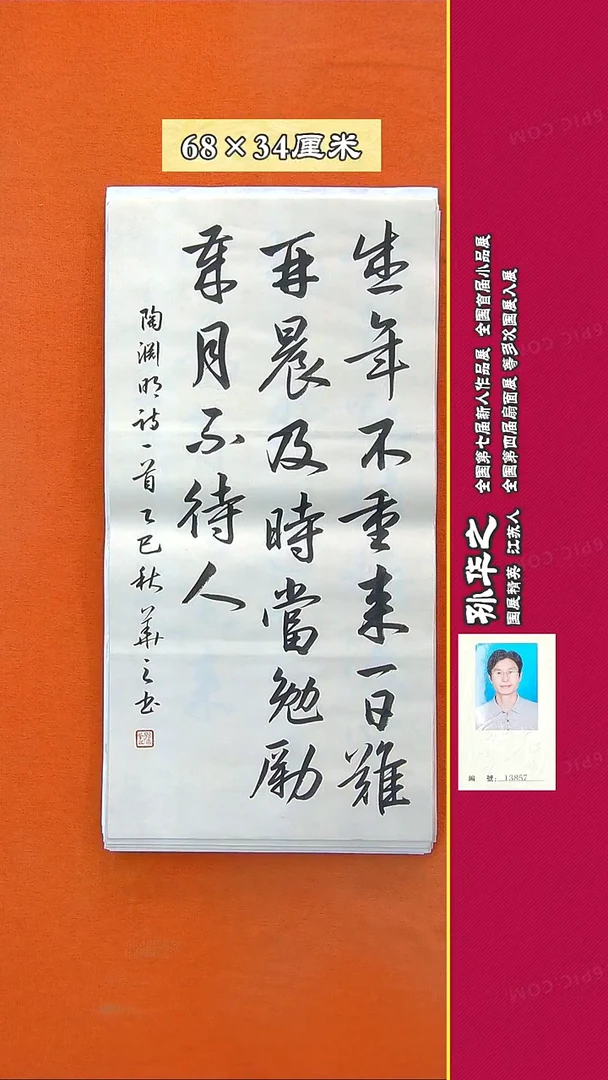 68×34厘米
盛年不重来一日難
再晨及時當勉勵
歲月不待人
陶淵明诗一首乙巳秋華之书
孙华之
国展精英 江苏人
全国第七届新人作品展 全国首届小品展
全国第四届扇面展 等多次国展入展
编 號: 13857